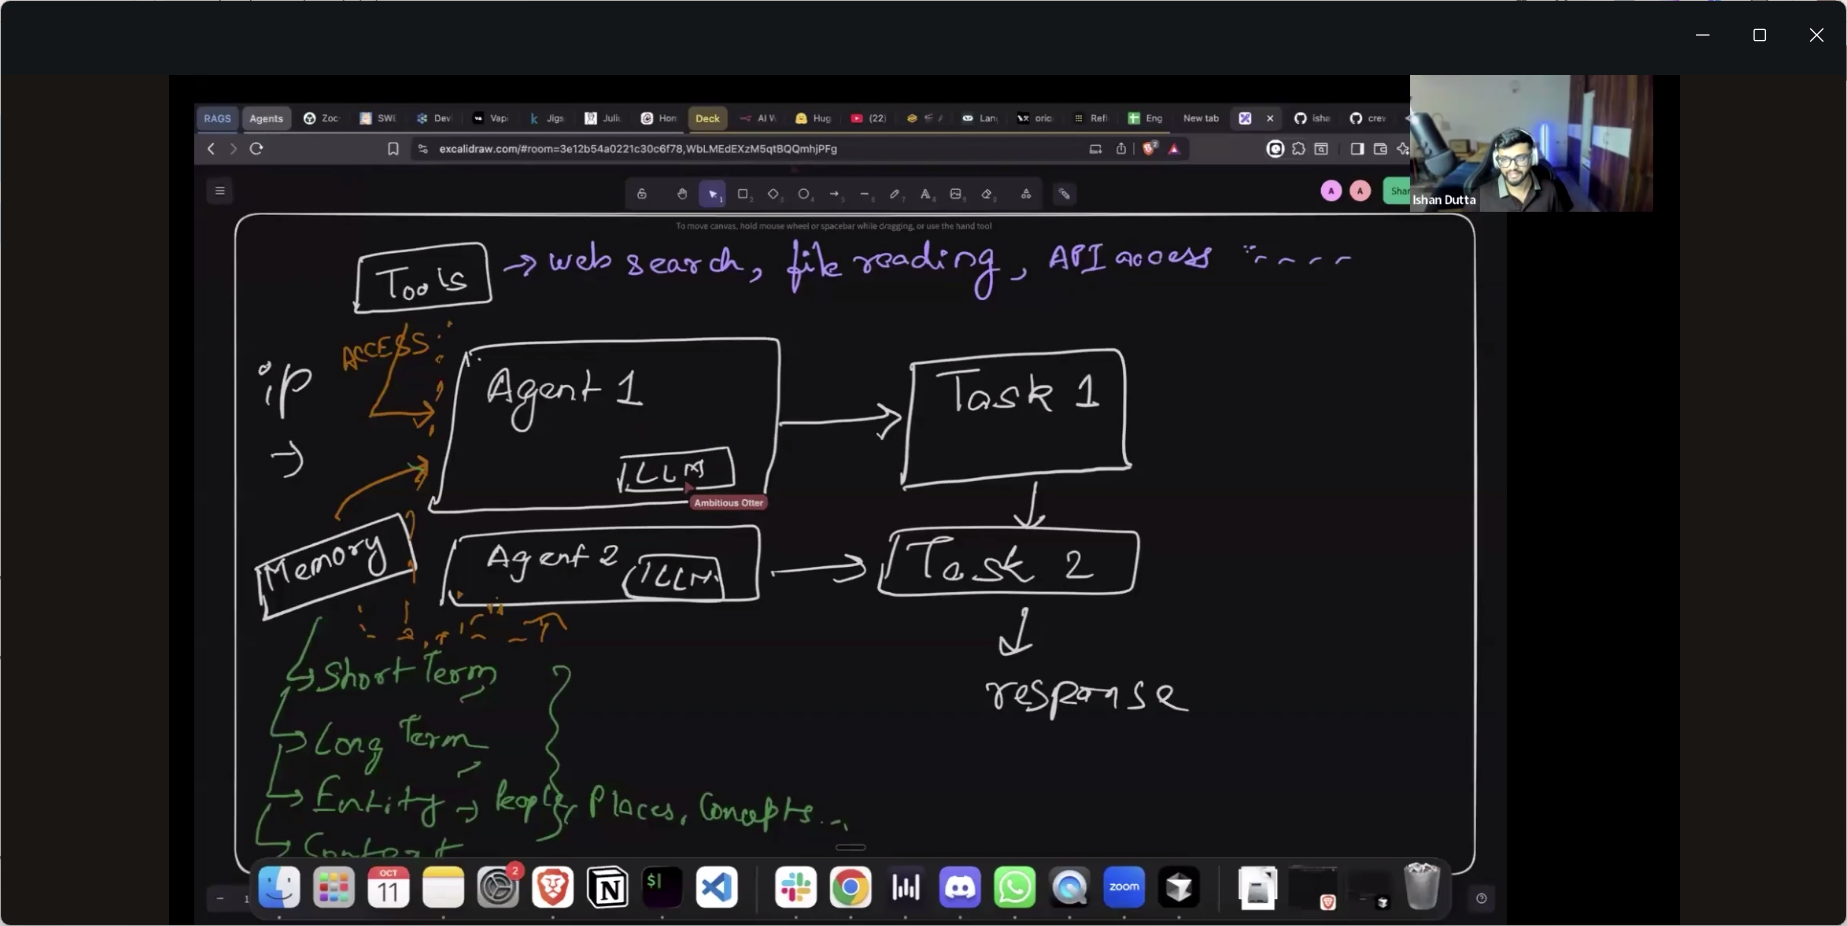 RAGS Agents Zoc SWI Dev Vap Jigs Juli Hon Deck AI V Hug (22) Lan oric Refl Eng New tab isha crew
excalidraw.com/#room=3e12b54a0221c30c6f78,WbLMEdEXzM5qtBQQmhjPFg
A A Shar
Ishan Dutta
To move canvas, hold mouse wheel or spacebar while dragging, or use the hand tool
Tools → web search, file reading, API access
ACCESS
ip →
Agent 1
LLM
Ambitious Otter
Task 1
Memory
Agent 2 LLM
Task 2
response
Short Term
Long Term
Entity → People, Places, Concepts...
Context
OCT
11
2
$
zoom